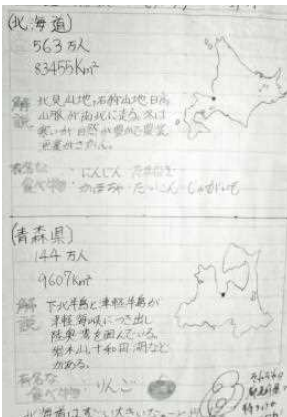 (北海道)
563万人
83455Km²
解説 北見山地、石狩山地、日高
山脈が南北に走る。冬は
寒いが自然が豊かで農業、
漁業がさかん。
有名な食べ物・にんじん・たまねぎ
・かぼちゃ・だいこん・じゃがいも
(青森県)
144万人
9607Km²
解説 下北半島と津軽半島が
津軽海峡につき出し
陸奥湾を囲んでいる。
岩木山、十和田湖など
がある。
有名な食べ物・りんご
北海道はすごい大きいなー